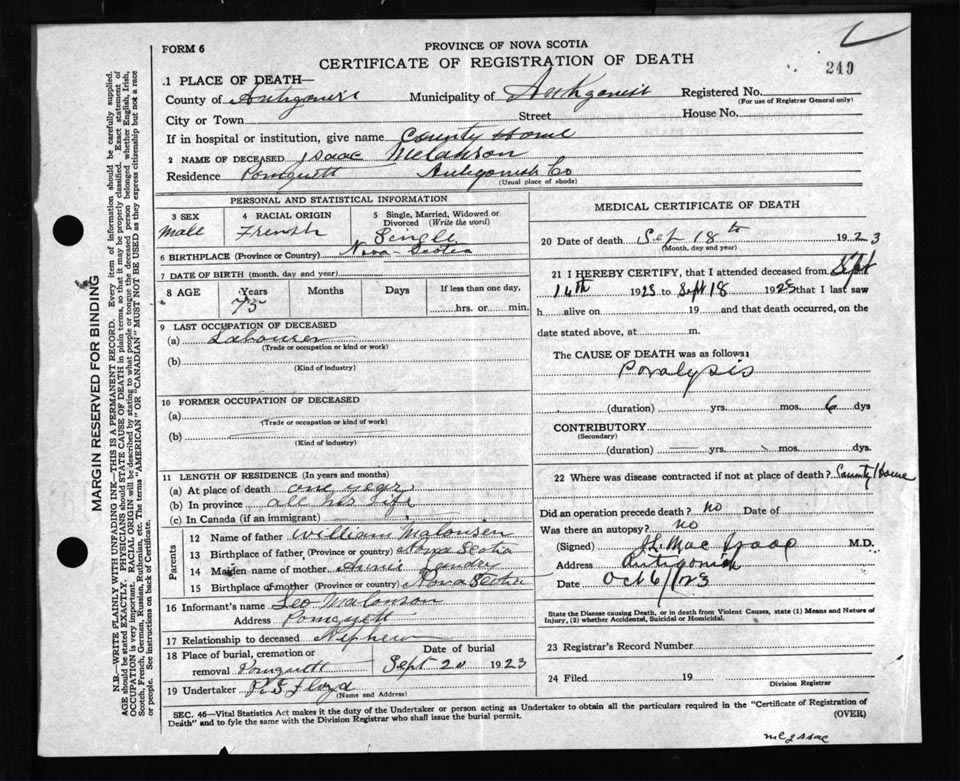 FORM 6
PROVINCE OF NOVA SCOTIA
CERTIFICATE OF REGISTRATION OF DEATH
249
1 PLACE OF DEATH—
County of Antigonish Municipality of Antigonish Registered No.
(For use of Registrar General only)
City or Town Street House No.
If in hospital or institution, give name County Home
2 NAME OF DECEASED Isaac Melanson
Residence Pomquett Antigonish Co
(Usual place of abode)
PERSONAL AND STATISTICAL INFORMATION
3 SEX
Male
4 RACIAL ORIGIN
French
5 Single, Married, Widowed or Divorced (Write the word)
Single
6 BIRTHPLACE (Province or Country) Nova-Scotia
7 DATE OF BIRTH (month, day and year)
8 AGE Years Months Days If less than one day,
75 hrs. or min.
9 LAST OCCUPATION OF DECEASED
(a) Labourer
(Trade or occupation or kind or work)
(b)
(Kind of industry)
10 FORMER OCCUPATION OF DECEASED
(a)
(Trade or occupation or kind of work)
(b)
(Kind of industry)
11 LENGTH OF RESIDENCE (In years and months)
(a) At place of death one year
(b) In province all his life
(c) In Canada (if an immigrant)
Parents
12 Name of father William Malonsen
13 Birthplace of father (Province or country) Nova Scotia
14 Maiden name of mother Annie Landry
15 Birthplace of mother (Province or country) Nova Scotia
16 Informant's name Leo Malonson
Address Pomquett
17 Relationship to deceased Nephew
18 Place of burial, cremation or removal Pomquett
Date of burial
Sept 20 1923
19 Undertaker Floyd
(Name and Address)
MEDICAL CERTIFICATE OF DEATH
20 Date of death Sep 18th 1923
(Month, day and year)
21 I HEREBY CERTIFY, that I attended deceased from Sept
14th 1923 to Sept 18 1923 that I last saw
h alive on 19 and that death occurred, on the
date stated above, at m.
The CAUSE OF DEATH was as follows:
Paralysis
(duration) yrs. mos. 6 dys
CONTRIBUTORY
(Secondary)
(duration) yrs. mos. dys.
22 Where was disease contracted if not at place of death? County Home
Did an operation precede death? no Date of
Was there an autopsy? no
(Signed) Mac Isaac M.D.
Address Antigonish
Date Oct 6/23
State the Disease causing Death, or in death from Violent Causes, state (1) Means and Nature of
Injury, (2) whether Accidental, Suicidal or Homicidal.
23 Registrar's Record Number
24 Filed 19
Division Registrar
SEC. 46—Vital Statistics Act makes it the duty of the Undertaker or person acting as Undertaker to obtain all the particulars required in the "Certificate of Registration of
Death" and to fyle the same with the Division Registrar who shall issue the burial permit.
(OVER)
McIsaac
MARGIN RESERVED FOR BINDING
N.B.—WRITE PLAINLY WITH UNFADING INK—THIS IS A PERMANENT RECORD. Every item of information should be carefully supplied.
AGE should be stated EXACTLY. PHYSICIANS should STATE CAUSE OF DEATH in plain terms, so that it may be properly classified. Exact statement of
OCCUPATION is very important. RACIAL ORIGIN will be described by stating to what people or tongue the deceased person belonged whether English, Irish,
Scotch, French, German, Russian, Ruthenian, etc. The terms "AMERICAN" OR "CANADIAN" MUST NOT BE USED as they express citizenship but not a race
or people. See instructions on back of Certificate.